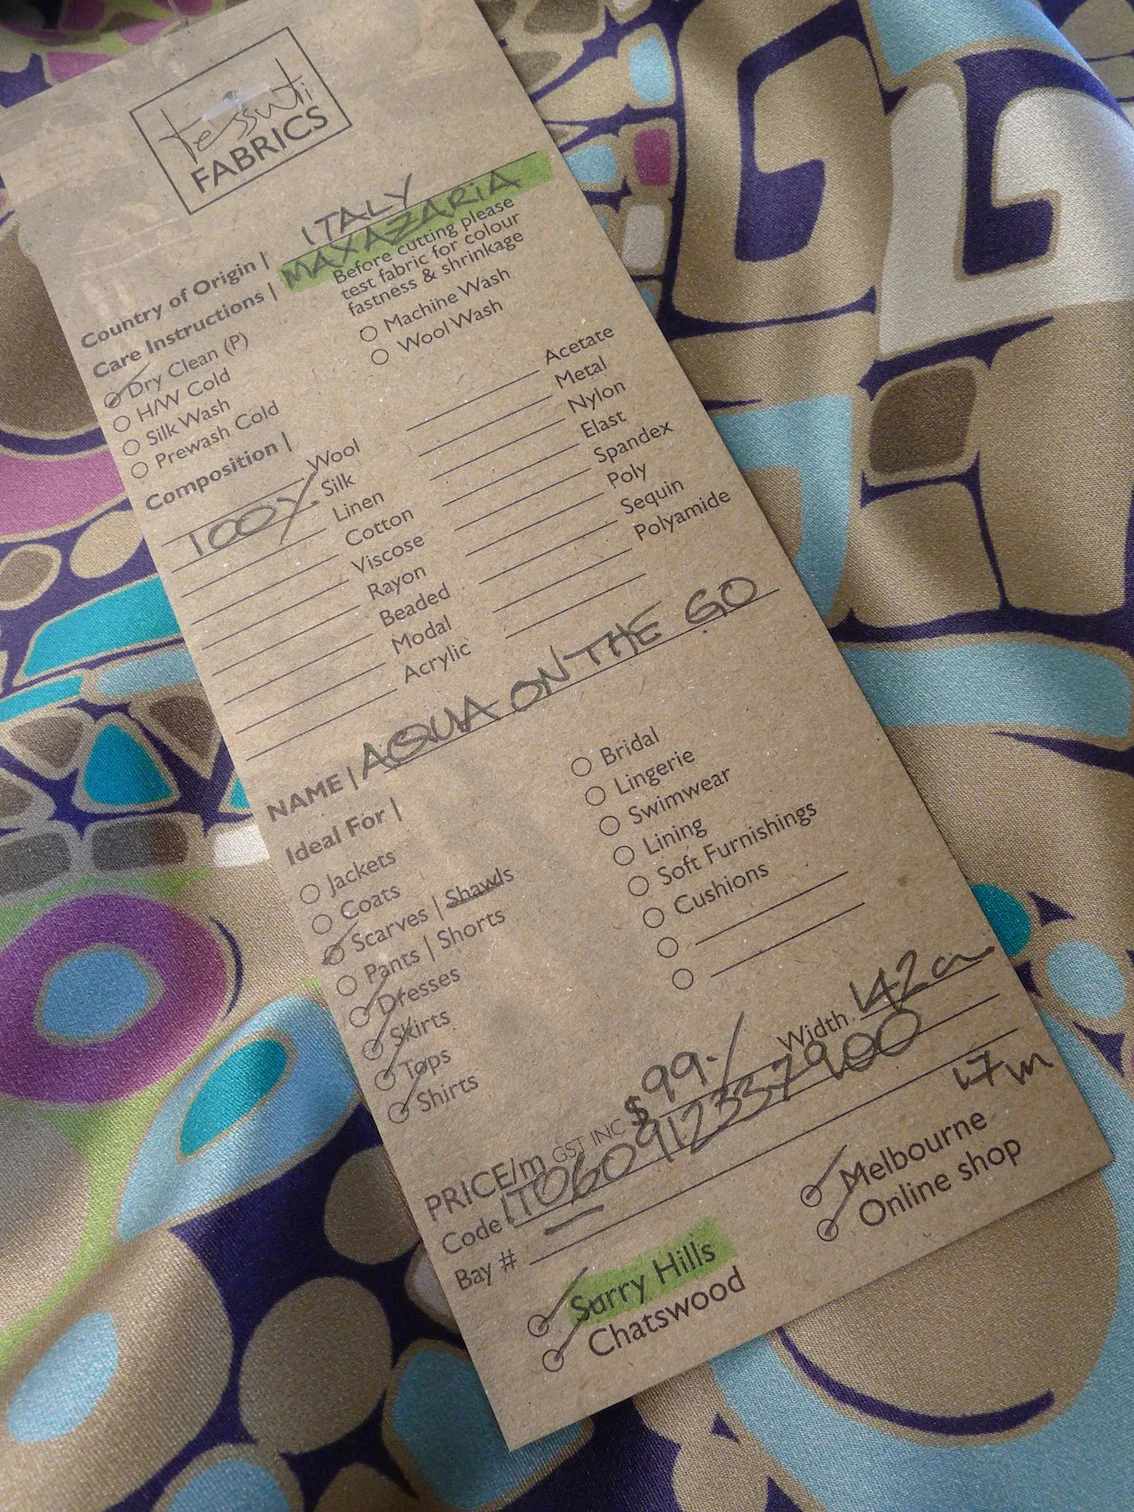 tessuti
FABRICS
Country of Origin | ITALY
MAXAZARIA
Care Instructions | Before cutting please
test fabric for colour
fastness & shrinkage
Dry Clean (P)
H/W Cold
Silk Wash
Prewash Cold
Machine Wash
Wool Wash
Composition |
Wool
100% Silk
Linen
Cotton
Viscose
Rayon
Beaded
Modal
Acrylic
Acetate
Metal
Nylon
Elast
Spandex
Poly
Sequin
Polyamide
NAME | AQUA ON THE GO
Ideal For |
Jackets
Coats
Scarves | Shawls
Pants | Shorts
Dresses
Skirts
Tops
Shirts
Bridal
Lingerie
Swimwear
Lining
Soft Furnishings
Cushions
PRICE/m GST INC $99.- Width 142cm
Code IT060912337900
Bay # 17m
Surry Hills
Chatswood
Melbourne
Online shop